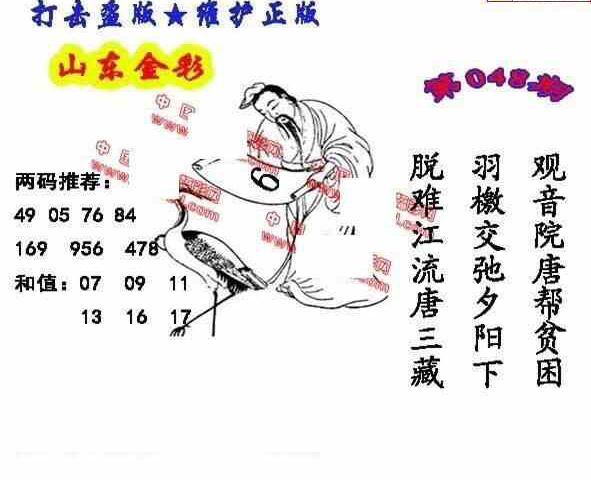 打击盗版★维护正版
山东金彩
第048期
两码推荐:
49 05 76 84
169 956 478
和值: 07 09 11
13 16 17
6
观音院唐帮贫困
羽檄交弛夕阳下
脱难江流唐三藏